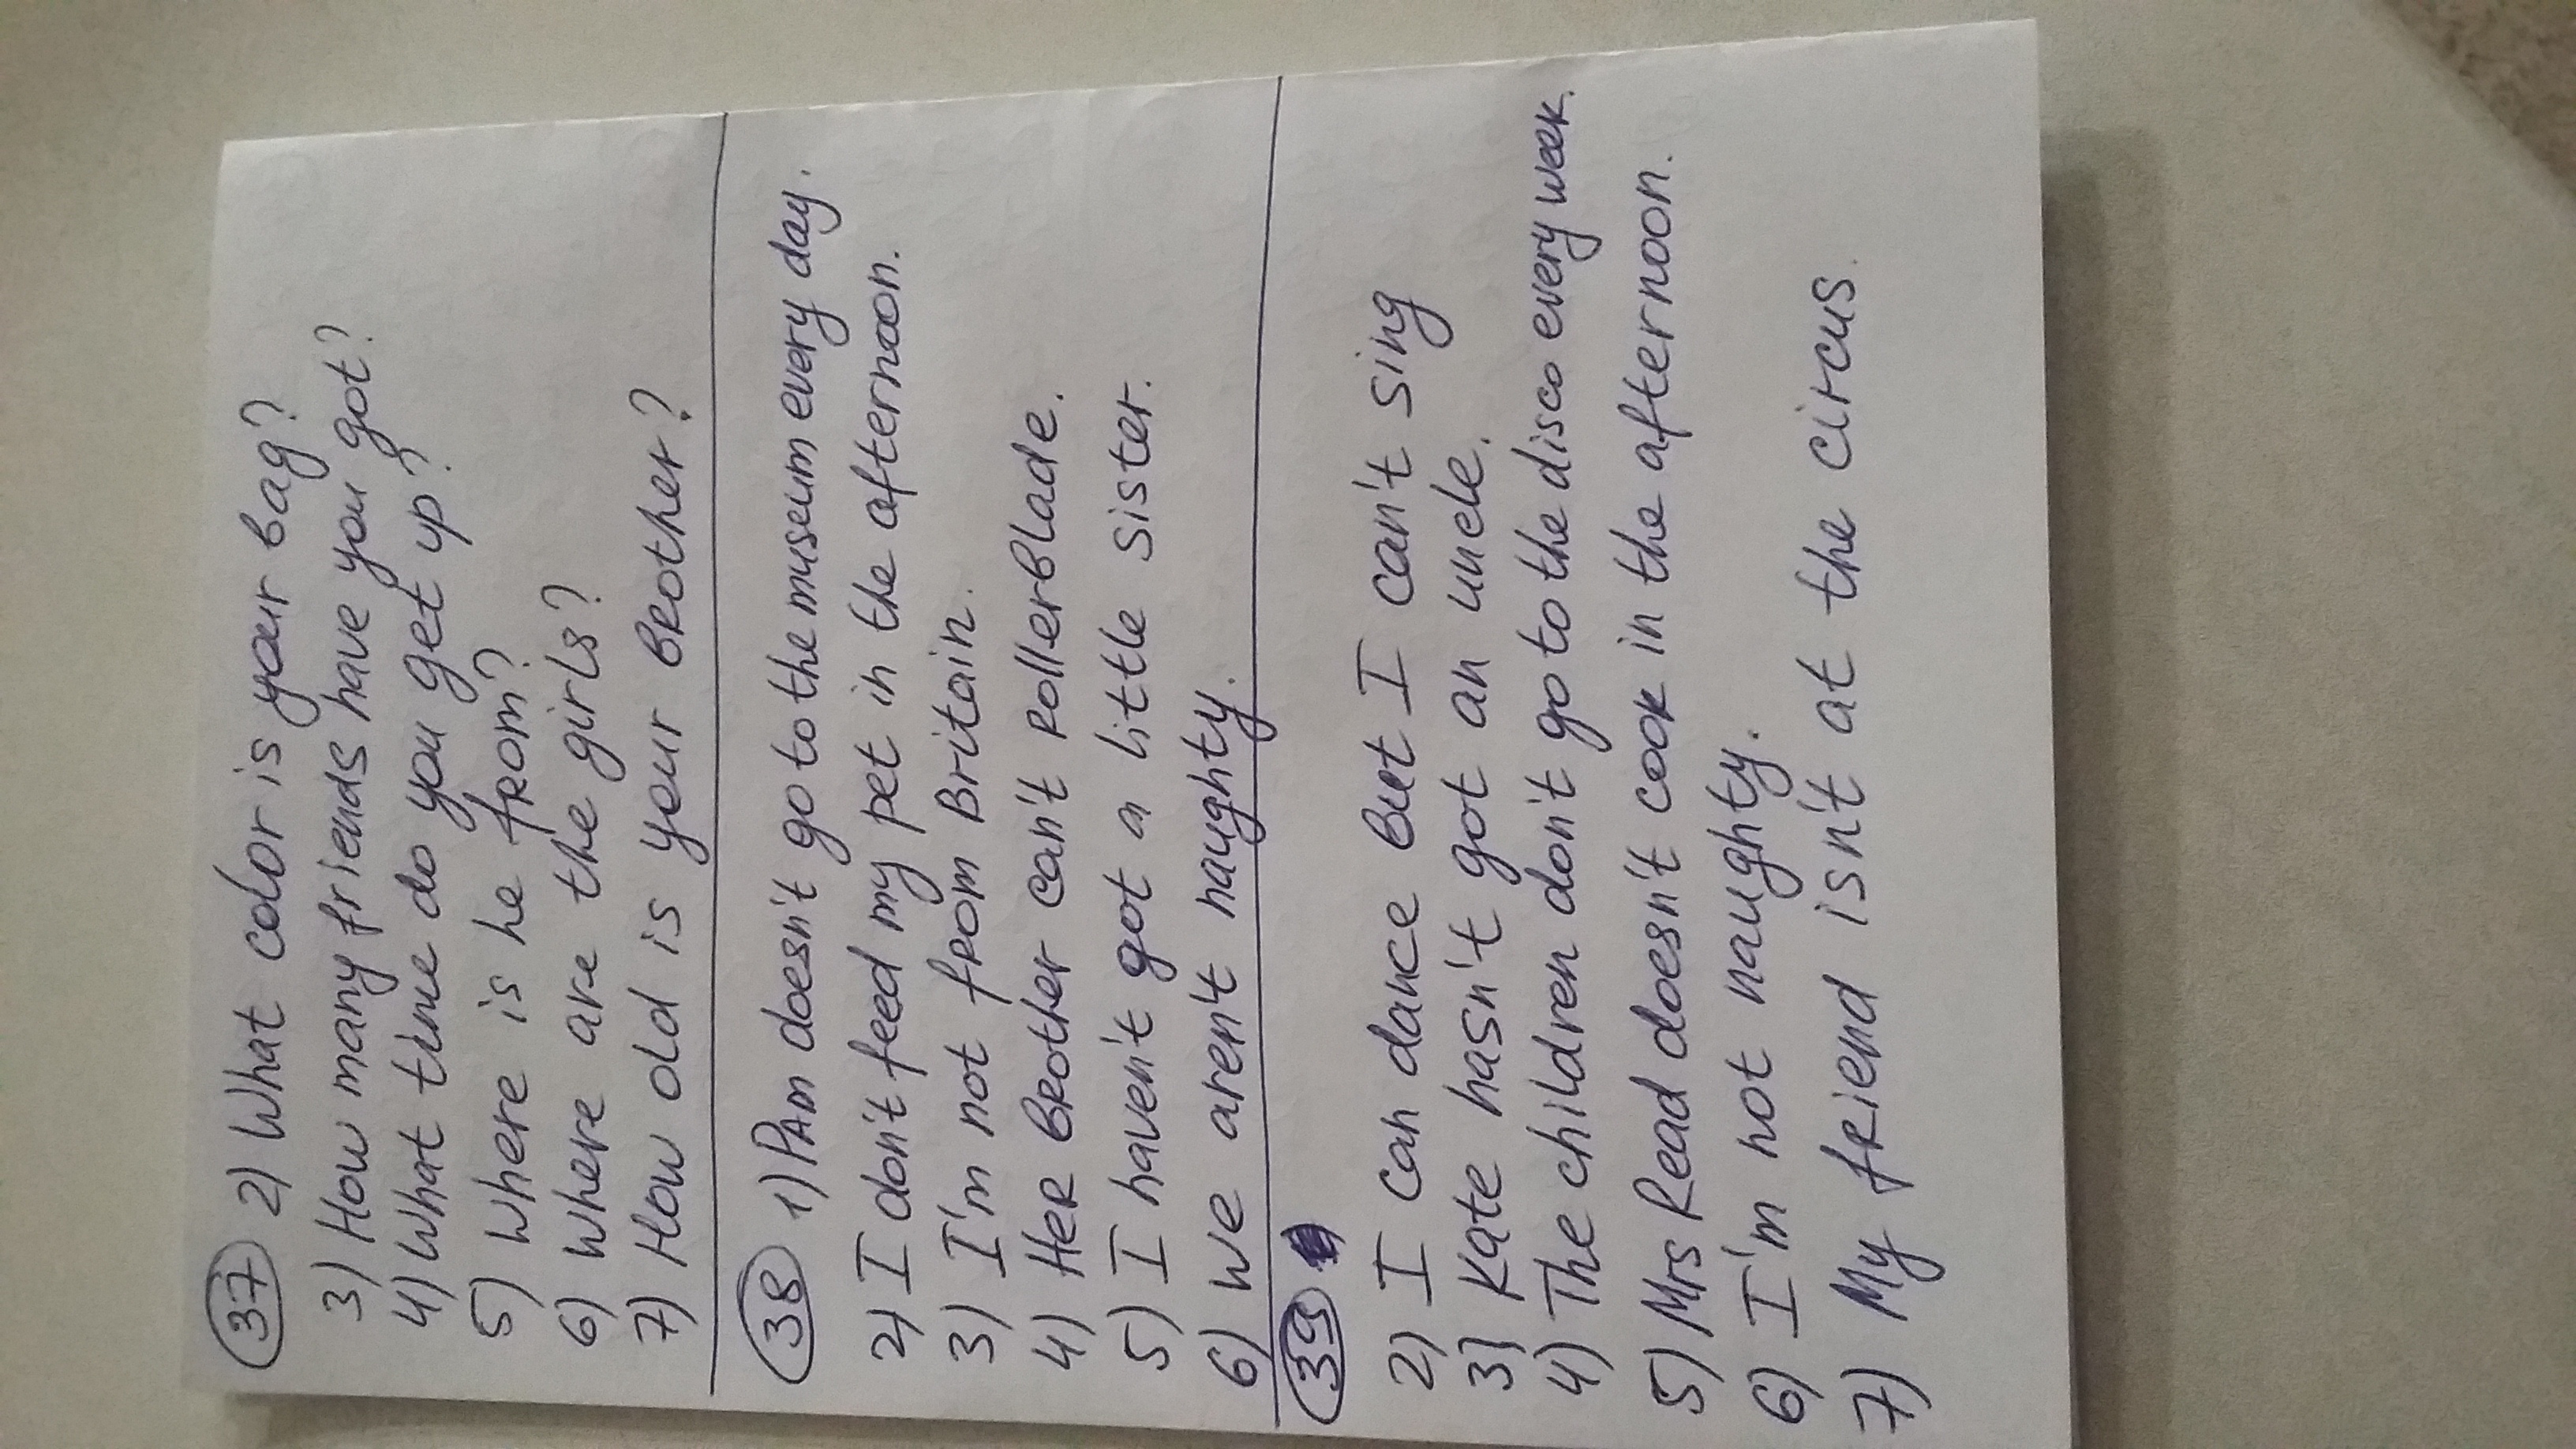 37 2) What color is your bag?
3) How many friends have you got?
4) What time do you get up?
5) Where is he from?
6) Where are the girls?
7) How old is your brother?
38 1) Pam doesn't go to the museum every day.
2) I don't feed my pet in the afternoon.
3) I'm not from Britain.
4) Her brother can't rollerblade.
5) I haven't got a little sister.
6) We aren't naughty.
39
2) I can dance but I can't sing
3) Kate hasn't got an uncle.
4) The children don't go to the disco every week.
5) Mrs Read doesn't cook in the afternoon.
6) I'm not naughty.
7) My friend isn't at the circus.